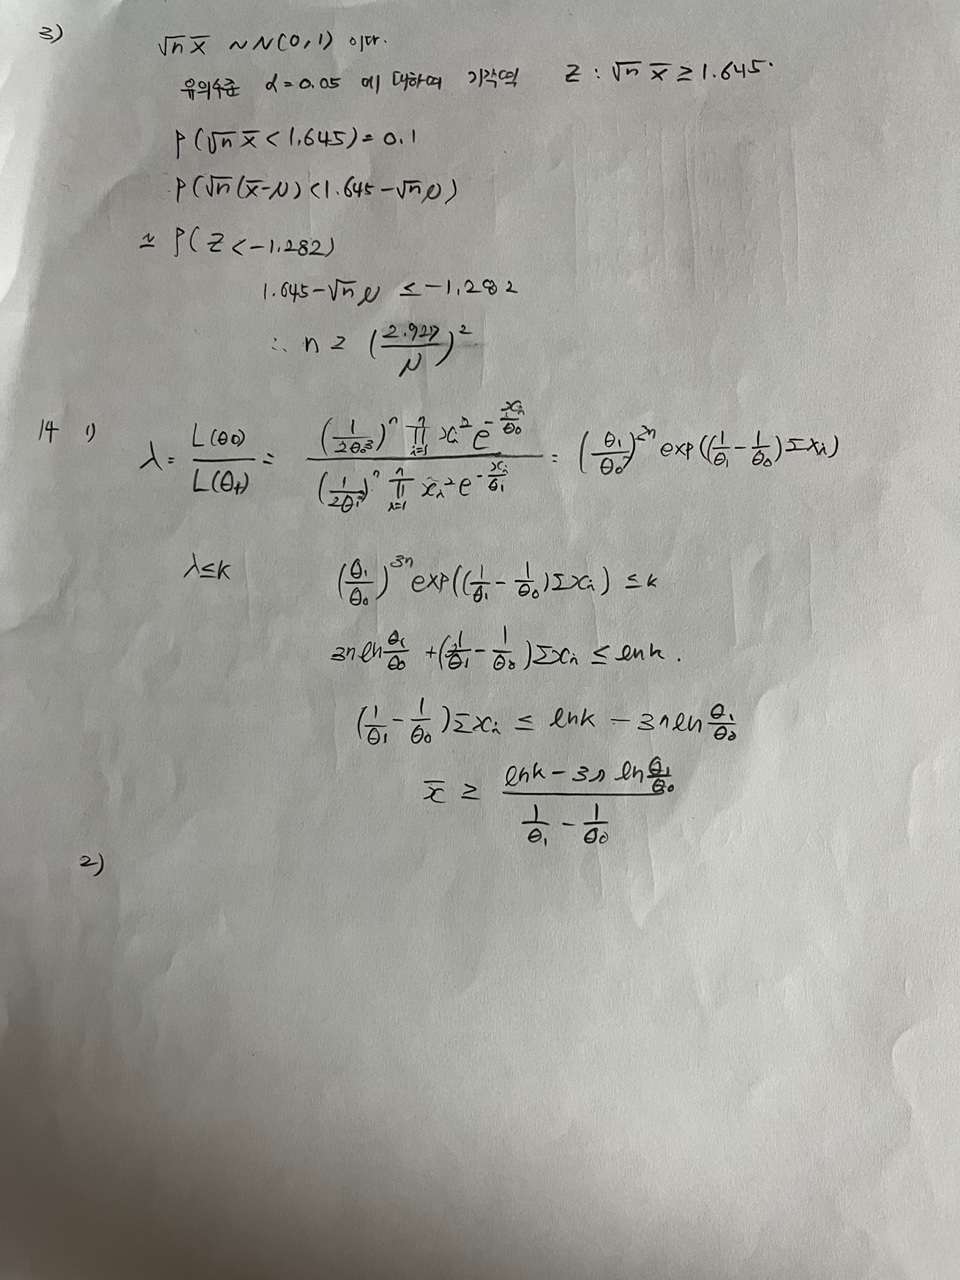 3) √n x̄ ~ N(0,1) 이다.
유의수준 α=0.05 에 대하여 기각역 Z : √n x̄ ≥ 1.645.
P(√n x̄ < 1.645) = 0.1
P(√n(x̄-μ) < 1.645 - √n μ)
≃ P(Z < -1.282)
1.645 - √n μ ≤ -1.282
∴ n ≥ (2.927/μ)²
14 1) λ = L(θ0)/L(θ1) = (1/2θ0³)ⁿ ∏ᵢ₌₁ⁿ xᵢ² e^(-xᵢ/θ0) / (1/2θ1³)ⁿ ∏ᵢ₌₁ⁿ xᵢ² e^(-xᵢ/θ1) = (θ1/θ0)^3n exp((1/θ1 - 1/θ0)Σxᵢ)
λ≤k (θ1/θ0)^3n exp((1/θ1 - 1/θ0)Σxᵢ) ≤ k
3n ln θ1/θ0 + (1/θ1 - 1/θ0)Σxᵢ ≤ lnk.
(1/θ1 - 1/θ0)Σxᵢ ≤ lnk - 3n ln θ1/θ0
x̄ ≥ (lnk - 3n ln θ1/θ0) / (1/θ1 - 1/θ0)
2)